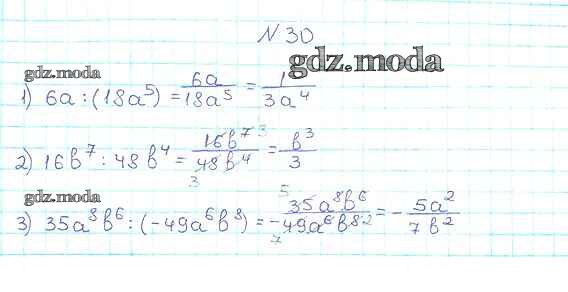 N 30
gdz.moda
gdz.moda
1) 6a : (18a⁵) = 6a/18a⁵ = 1/3a⁴
2) 16b⁷ : 48b⁴ = 16b⁷ ³/48b⁴ 3 = b³/3
gdz.moda
3) 35a⁸b⁶ : (-49a⁶b⁸) = 5 35a⁸b⁶/-49a⁶b⁸ ² 7 = - 5a²/7b²